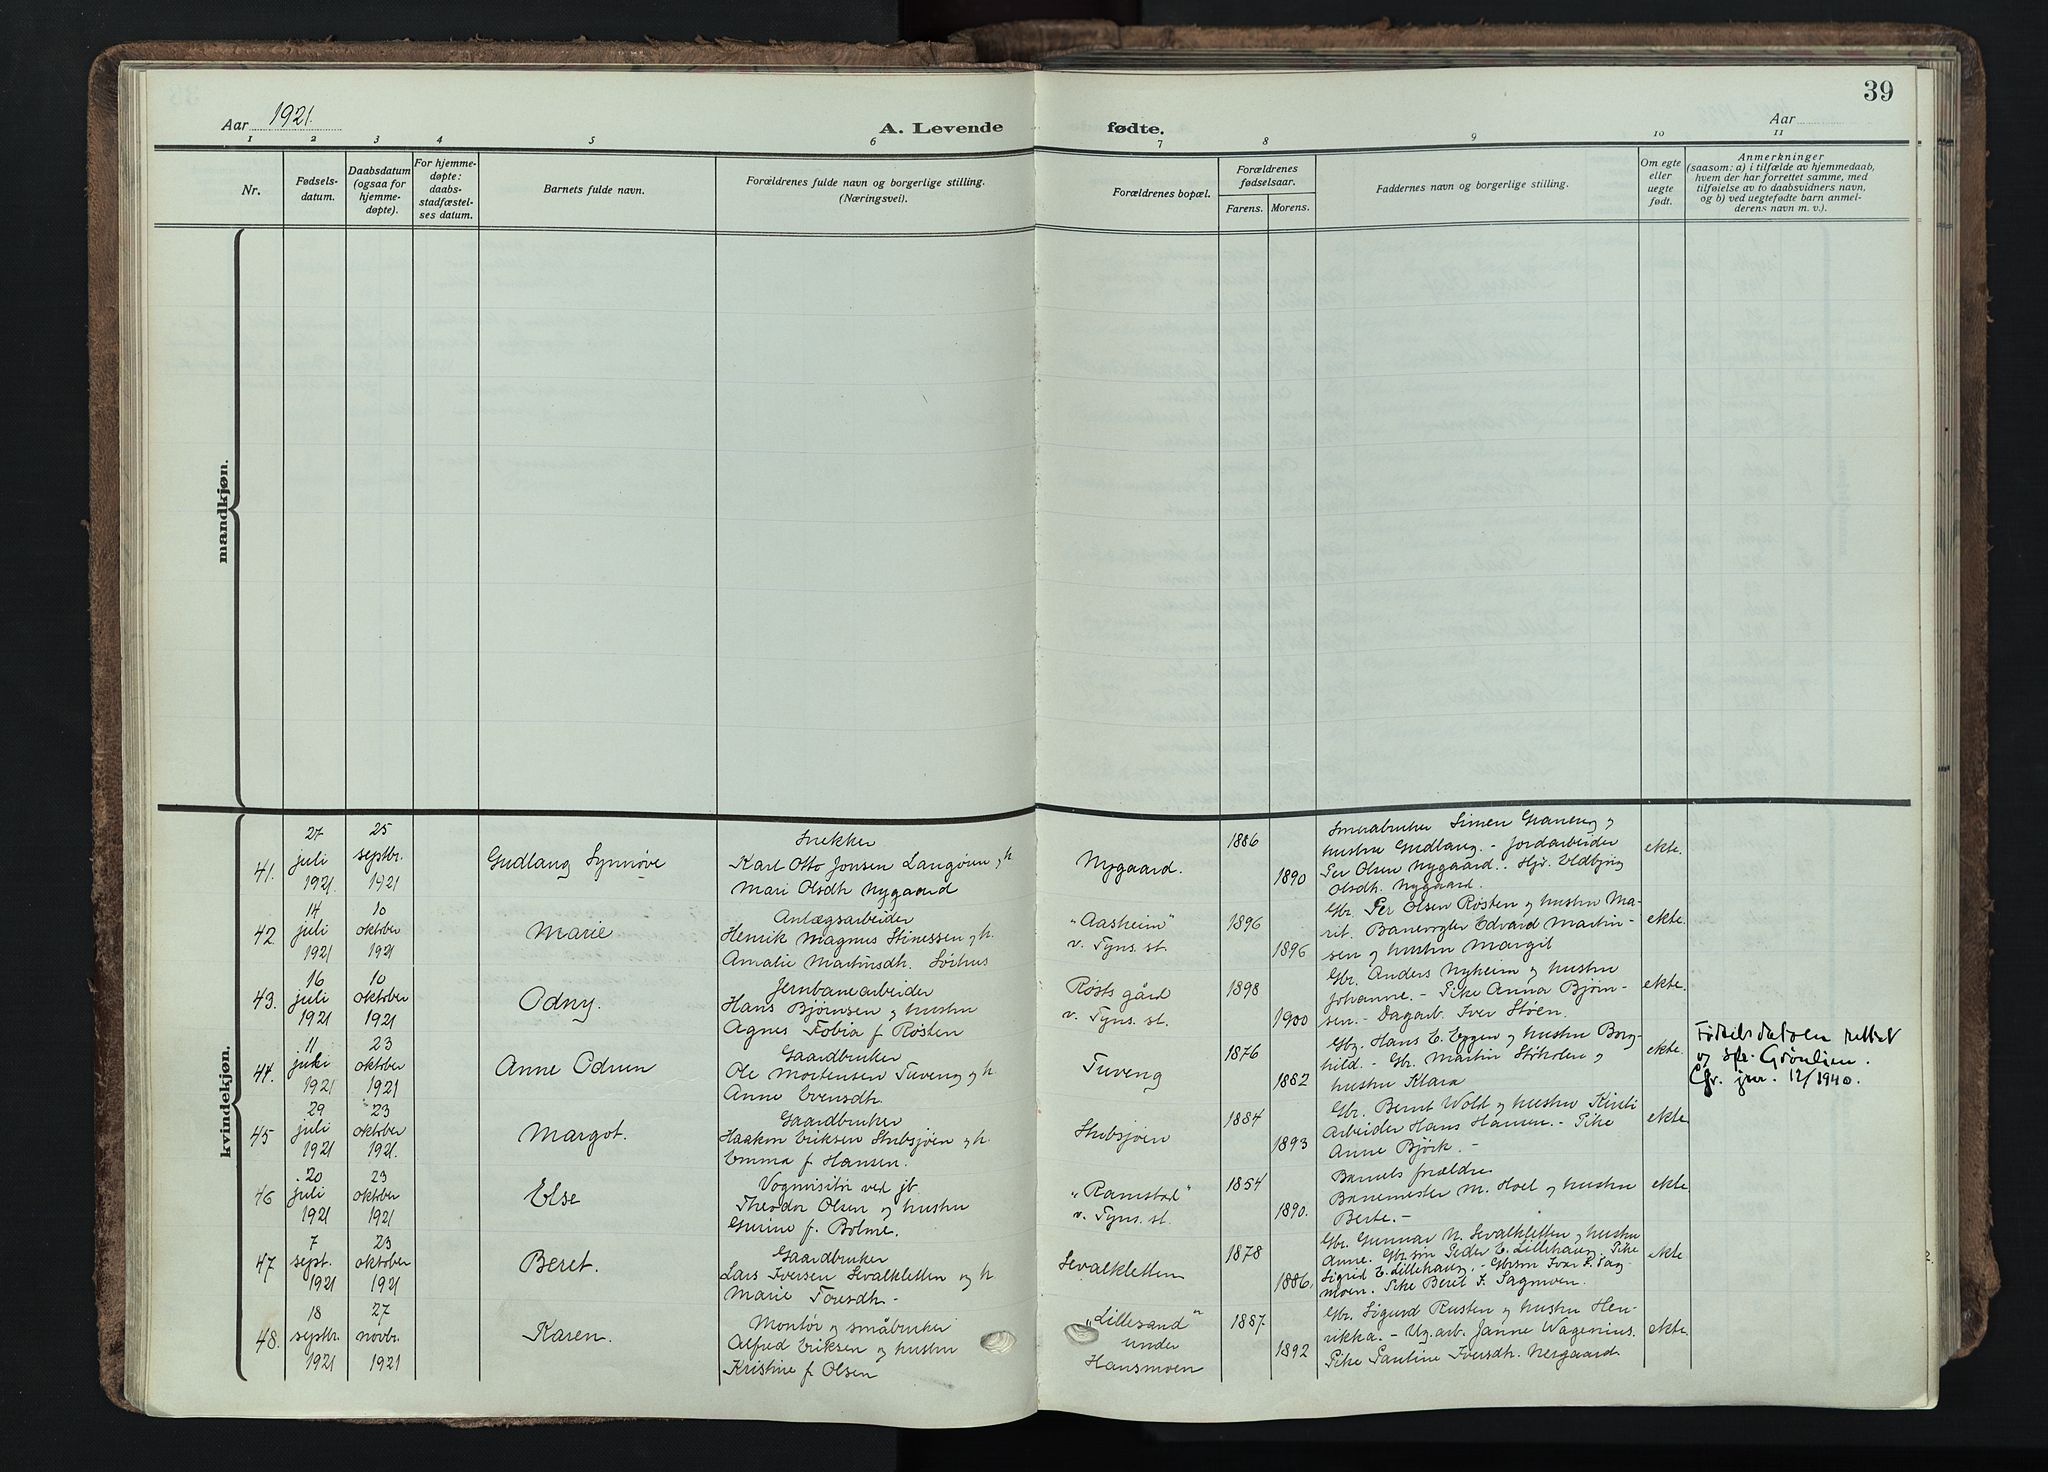 39
Aar 1921.
A. Levende
fødte.
Aar
1 2 3 4 5 6 7 8 9 10 11
Nr.
Fødsels-
datum.
Daabsdatum
(ogsaa for
hjemme-
døpte).
For hjemme-
døpte:
daabs-
stadfæstel-
ses datum.
Barnets fulde navn.
Forældrenes fulde navn og borgerlige stilling.
(Næringsvei).
Forældrenes bopæl.
Forældrenes
fødselsaar.
Farens. Morens.
Faddernes navn og borgerlige stilling.
Om egte
eller
uegte
født.
Anmerkninger
(saasom: a) i tilfælde av hjemmedaab,
hvem der har forrettet samme, med
tilføielse av to daabsvidners navn,
og b) ved uegtefødte barn anmel-
derens navn m. v.).
mandkjøn.
kvindekjøn.
41.
27
juli
1921.
25
septbr.
1921
Gudlaug Synnøve
Snekker
Karl Otto Jonsen Langøren og h
Mari Olsdh Nygaard
Nygaard.
1886
1890
Smaabruker Simen Graneng og
hustru Gudlaug. - Jordarbeider
Per Olsen Nygaard. Hjr. Eldbjørg
Olsdh. Nygaard.
ekte.
42.
14
juli
1921
10
oktober
1921
Marie
Anlægsarbeider
Henrik Magnus Stinessen og h.
Amalie Martinsdh. Svihus
"Aasheim"
v. Tyns. st.
1896
1896
Gbr. Per Olsen Røsten og hustru Ma-
rit. Banevogter Edvard Martin-
sen og hustru Margit
ekte.
43.
16
juli
1921
10
oktober
1921
Odny.
Jernbanearbeider
Hans Bjørnsen og hustru
Agnes Tobia f. Røsten
Røsts gård
v. Tyns. st.
1898
1900
Gbr. Anders Nyheim og hustru
Johanne. - Pike Anna Bjørn-
sen. - Dagarb. Iver Støen.
ekte.
44.
11
juli
1921
23
oktober
1921
Anne Odrun
Gaardbruker
Ole Mortensen Tuveng og h.
Anne Evensdh.
Tuveng
1876
1882
Gbr. Hans E. Eggen og hustru Borg-
hild. - Gbr. Martin Støholen og
hustru Klara
ekte.
Fødselsdatoen rettet
og spr. Grønlien.
Cfr. jnr. 12/1940.
45
29
juli
1921
23
oktober
1921.
Margot.
Gaardbruker
Haakon Eriksen Stubsjøen og h.
Emma f. Hansen.
Stubsjøen
1884
1893
Gbr. Bernt Wold og hustru Kirsti
Arbeider Hans Hansen. - Pike
Anne Bjørk. -
ekte
46
20
juli
1921
23
oktober
1921
Else
Vognvisitør ved jb.
Theodor Olsen og hustru
Gurine f. Bolme.
"Ramstad"
v. Tyns. st.
1884
1890.
Barnets forældre
Banemester M. Hoel og hustru
Berte. -
ekte
47
7
sept.
1921
23
oktober
1921
Beret.
Gaardbruker
Lars Iversen Sevalkletten og h
Marie Toresdh. -
Sevalkletten
1878
1886.
Gbr. Gunnar N. Sevalkletten, hustru
Anne. Gbr.søn Peder E. Lillehaug. Pike
Sigrid E. Lillehaug. - Gbrsøn Ivar P. Sag-
moen. Pike Beret I. Sagmoen.
ekte
48.
18
septbr.
1921
27
novbr.
1921
Karen.
Montør og småbruker
Alfred Eriksen og hustru
Kristine f. Olsen
"Lillesand"
under
Hansmoen
1887
1892
Gbr. Sigurd Rusten og hustru Hen-
rikka. - Ug.arb. Janne Wagenius.
Pike Pauline Iversdh. Nergaard
ekte.